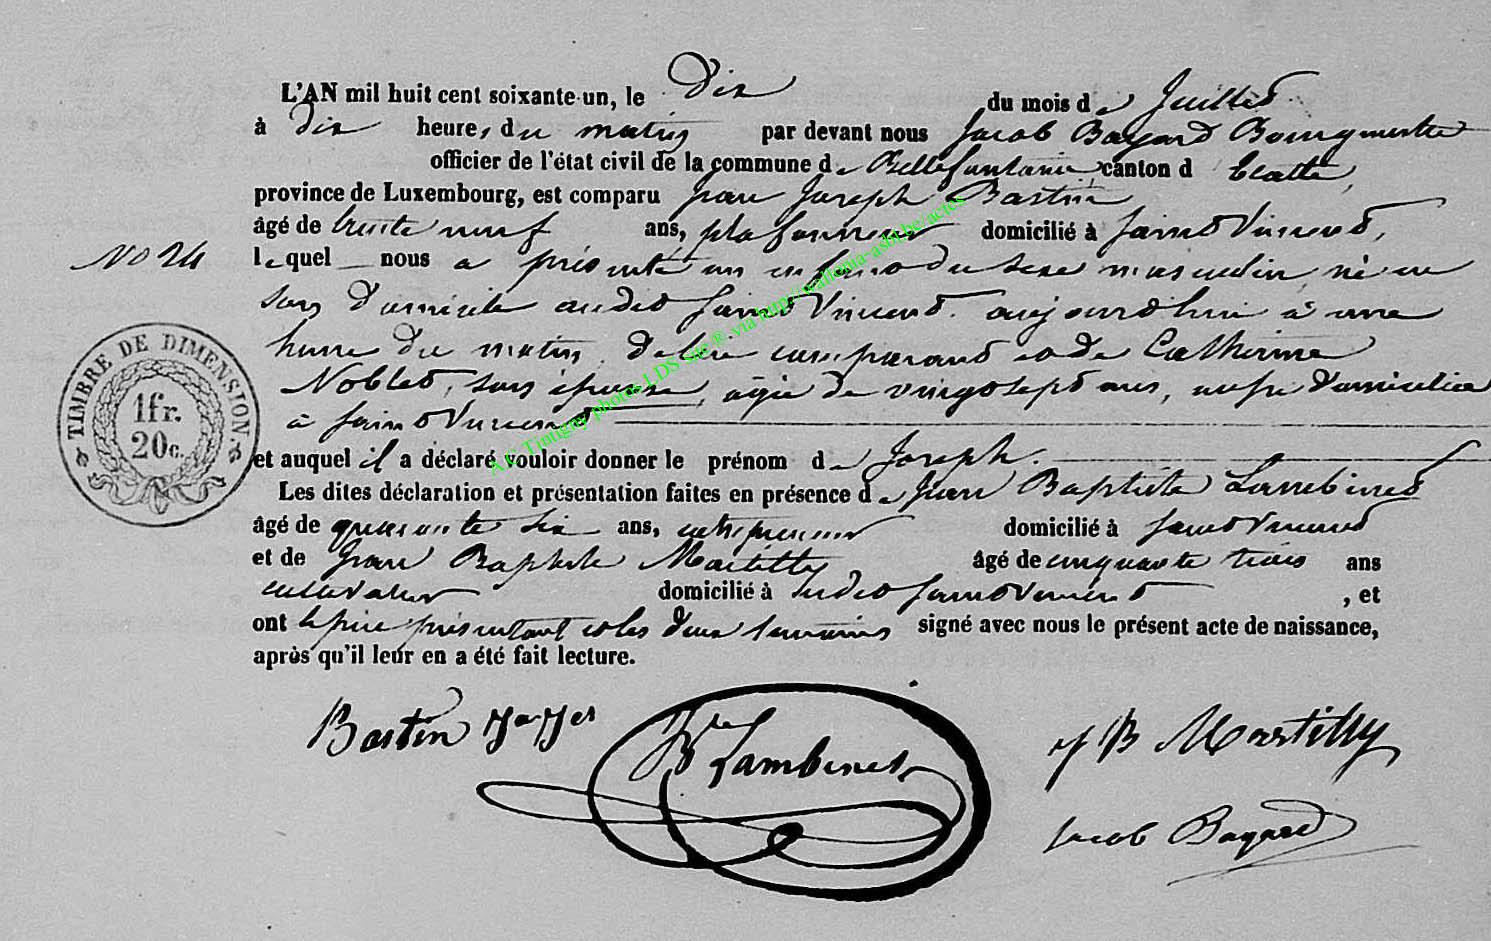 L'AN mil huit cent soixante-un, le Dix du mois de Juillet
à Dix heures du matin par devant nous Jacob Bayard Bourgmestre
officier de l'état civil de la commune de Bellefontaine canton d'Etalle,
province de Luxembourg, est comparu Jean Joseph Bastin
âgé de trente neuf ans, plafonneur domicilié à Saint Vincent,
No 24
lequel nous a présenté un enfant du sexe masculin, né en
son Domicile audit Saint Vincent. aujourd'hui à une
heure du matin. de lui comparant et de Catherine
Noblet, son épouse, agée de vingt sept ans, aussi Domiciliée
à Saint Vincent
et auquel il a déclaré vouloir donner le prénom de Joseph.
Les dites déclaration et présentation faites en présence de Jean Baptiste Lambinet
âgé de quarante six ans, entrepreneur domicilié à Saint Vincent
et de Jean Baptiste Martilly âgé de cinquante trois ans
cultivateur domicilié à sudit Saint Vincent, et
ont le père présentant et les deux témoins signé avec nous le présent acte de naissance,
après qu'il leur en a été fait lecture.
TIMBRE DE DIMENSION.
1fr.
20c.
A.C Tintigny photos LDS site ® via http://wallonia-asbl.be/actes
Bastin
Lambinet
JB Martilly
Jacob Bayard